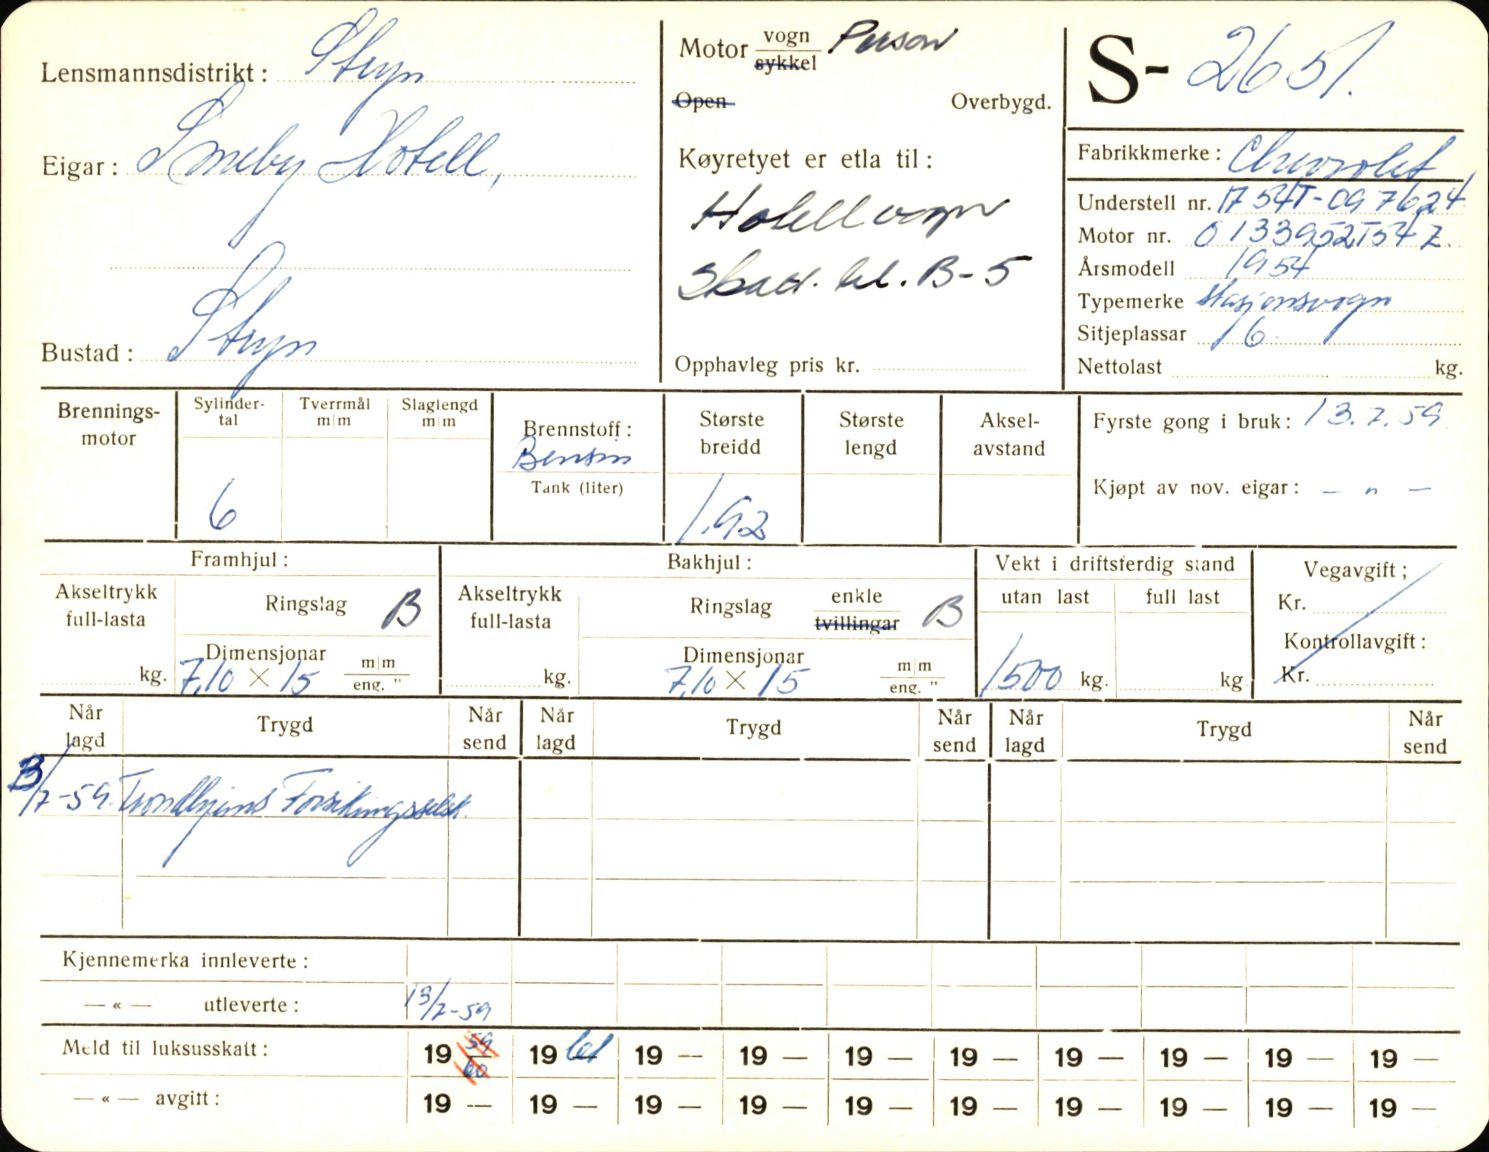 Lensmannsdistrikt: Stryn
Eigar: Smeby Hotell,
Bustad: Stryn
Motor vogn Person
sykkel
Open Overbygd.
Køyretyet er etla til:
Hotellvogn
B-5
Opphavleg pris kr.
S- 2651.
Fabrikkmerke: Chevrolet
Understell nr. 1754T-097624
Motor nr. 0133952T54Z.
Årsmodell 1954
Typemerke Stasjonsvogn
Sitjeplassar 6
Nettolast kg.
Brennings-
motor
Sylinder-
tal
6
Tverrmål
m|m
Slaglengd
m|m
Brennstoff:
Bensin
Tank (liter)
Største
breidd
1.92
Største
lengd
Aksel-
avstand
Fyrste gong i bruk: 13.7.59
Kjøpt av nov. eigar: – " –
Framhjul:
Akseltrykk
full-lasta
kg.
Ringslag B
Dimensjonar m|m
7,10 × 15 eng. "
Bakhjul:
Akseltrykk
full-lasta
kg.
Ringslag enkle B
tvillingar
Dimensjonar m|m
7,10 × 15 eng. "
Vekt i driftsferdig stand
utan last full last
1500 kg. kg
Vegavgift;
Kr.
Kontrollavgift:
Kr.
Når lagd Trygd Når send Når lagd Trygd Når send Når lagd Trygd Når send
13/7-59. Trondhjems Forsikringsselsk.
Kjennemerka innleverte:
— « — utleverte: 13/7-59
Meld til luksusskatt: 19 59 60 19 61 19 — 19 — 19 — 19 — 19 — 19 — 19 — 19 —
— « — avgitt: 19 — 19 — 19 — 19 — 19 — 19 — 19 — 19 — 19 — 19 —